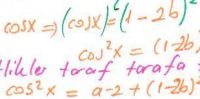 cosx ⇒ (cosx)² = (1-2b)²
cos²x = (1-2b)
likler taraf tarafa
cos²x = a-2 + (1-2b)²